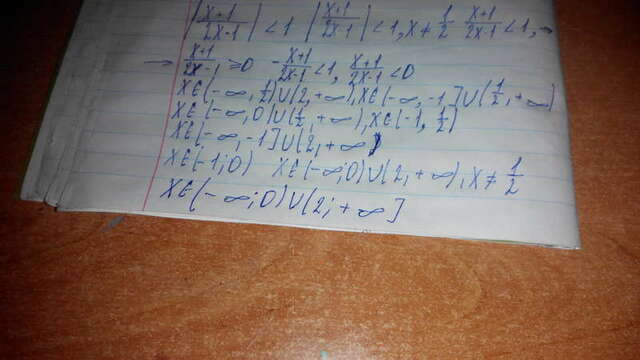 |x+1/2x-1| < 1 |x+1/2x-1| < 1, x ≠ 1/2 x+1/2x-1 < 1, →
→ x+1/2x-1 ≥ 0 - x+1/2x-1 < 1, x+1/2x-1 < 0
x∈(-∞, 1/2)∪(2,+∞), x∈(-∞,-1]∪(1/2,+∞)
x∈(-∞,0)∪(1/2,+∞), x∈(-1, 1/2)
x∈(-∞,-1]∪(2,+∞)
x∈(-1;0) x∈(-∞;0)∪(2,+∞), x ≠ 1/2
x∈(-∞;0)∪(2;+∞]